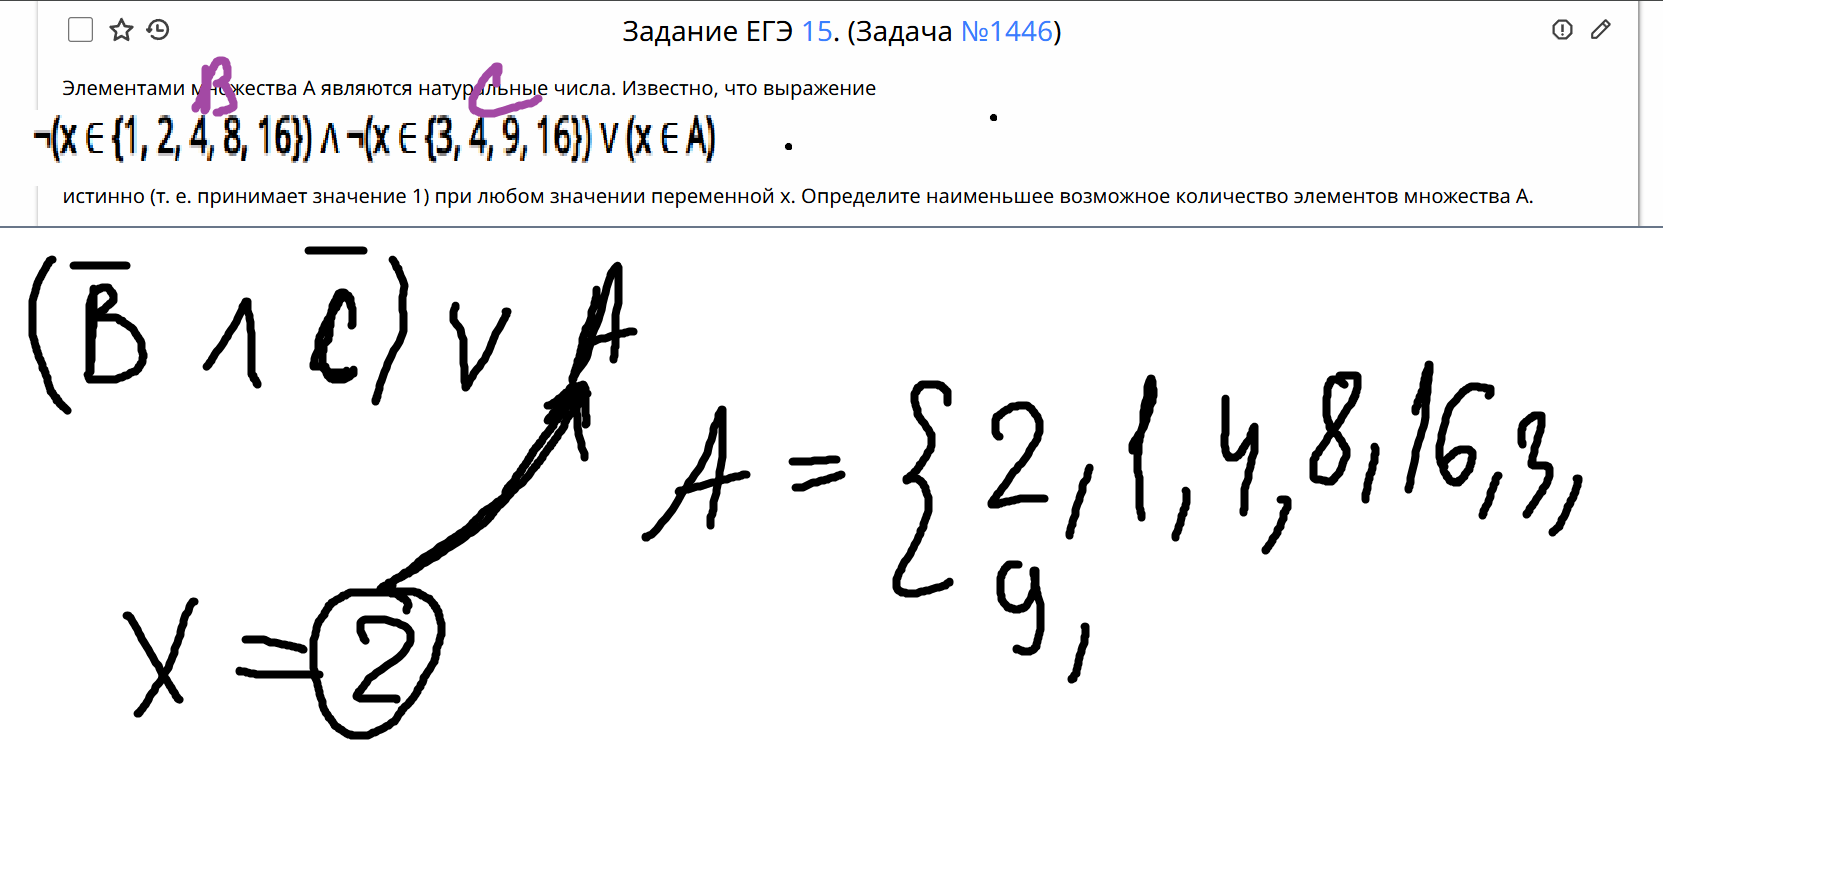 Задание ЕГЭ 15. (Задача №1446)
B C
Элементами множества А являются натуральные числа. Известно, что выражение
¬(x ∈ {1, 2, 4, 8, 16}) ∧ ¬(x ∈ {3, 4, 9, 16}) ∨ (x ∈ A)
истинно (т. е. принимает значение 1) при любом значении переменной х. Определите наименьшее возможное количество элементов множества А.
(B̅ ∧ C̅) ∨ A
A = {2, 1, 4, 8, 16, 3,
9,
X = 2